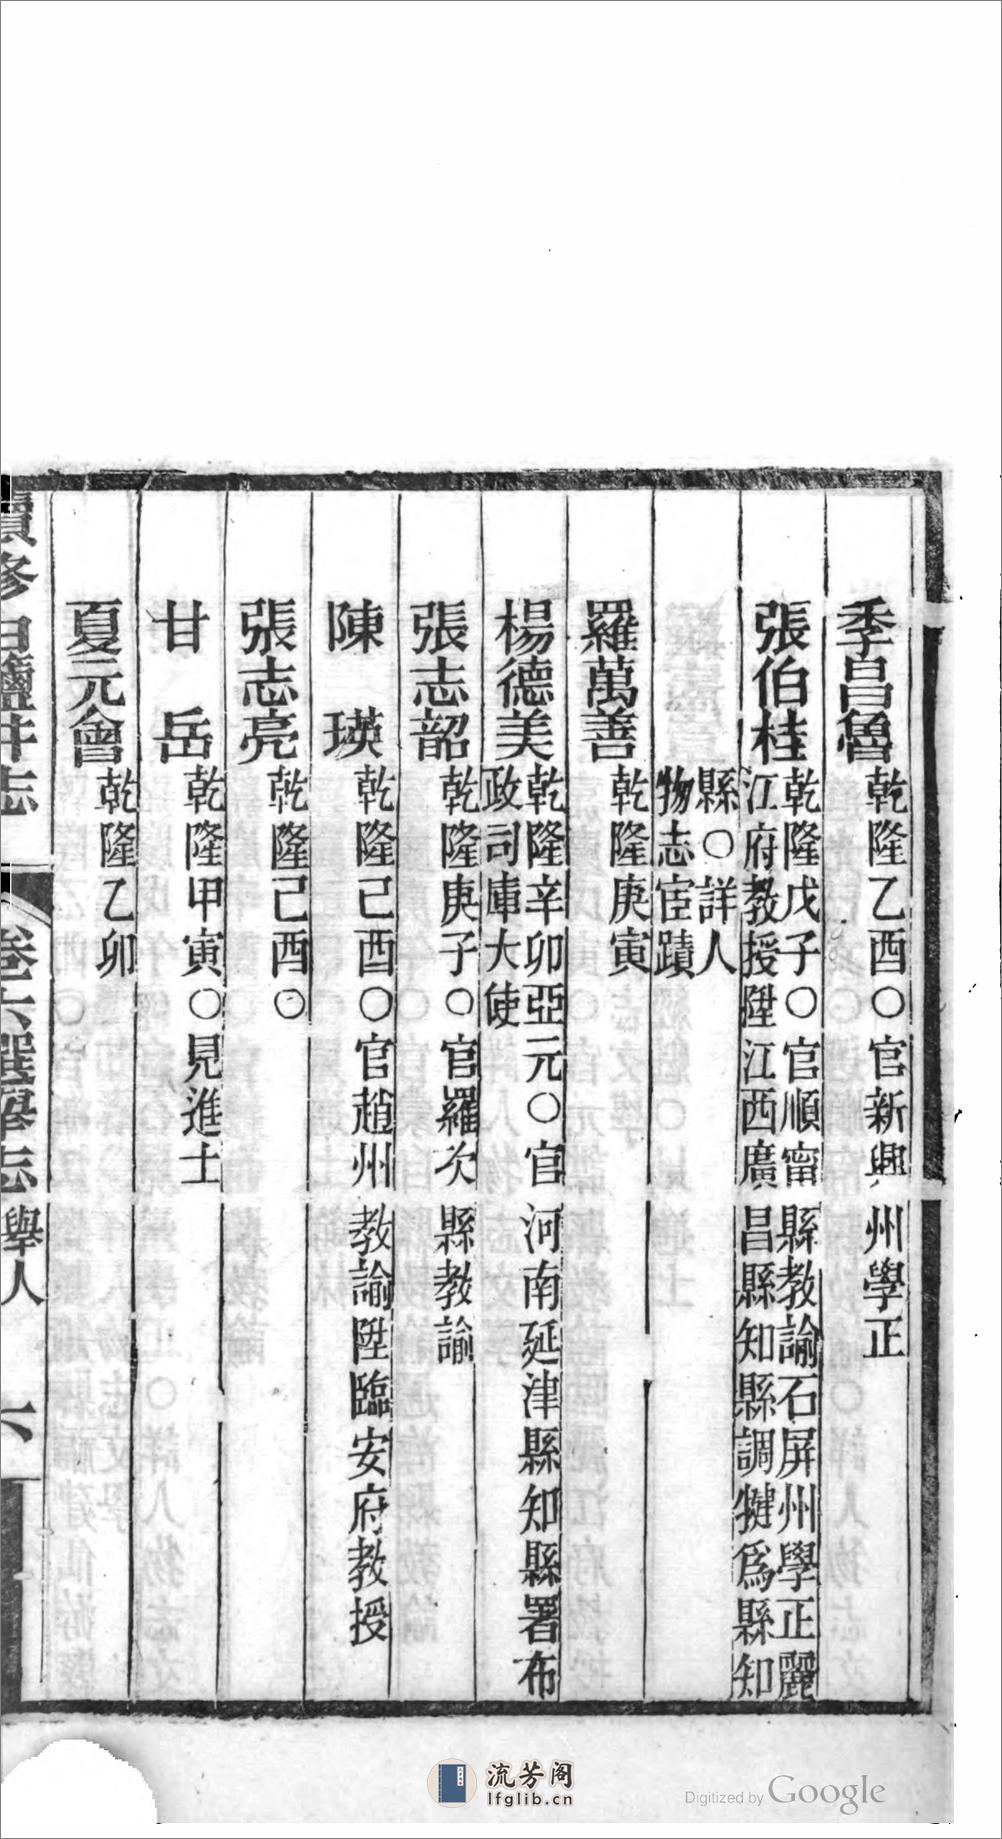 季昌魯乾隆乙酉○官新興州學正
張伯桂乾隆戊子○官順甯縣教諭石屏州學正麗
江府教授陞江西廣昌縣知縣調犍爲縣知
縣○詳人
物志宦蹟
羅萬善乾隆庚寅
楊德美乾隆辛卯亞元○官河南延津縣知縣署布
政司庫大使
張志韶乾隆庚子○官羅次縣教諭
陳瑛乾隆己酉○官趙州教諭陞臨安府教授
張志亮乾隆己酉○
甘岳乾隆甲寅○見進士
夏元會乾隆乙卯
續修白鹽井志 卷六選舉志 舉人 六
流芳阁
lfglib.cn
Digitized by Google